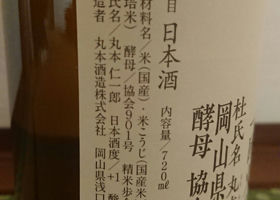 杜氏名 丸
岡山県
酵母 協会
目 日本酒
内容量/720ml
材料名/米(国産)・米こうじ(国産米
培米) 酵母/協会901号 精米歩
氏名/丸本 仁一郎 日本酒度/+1 酸
造者 丸本酒造株式会社 岡山県浅口